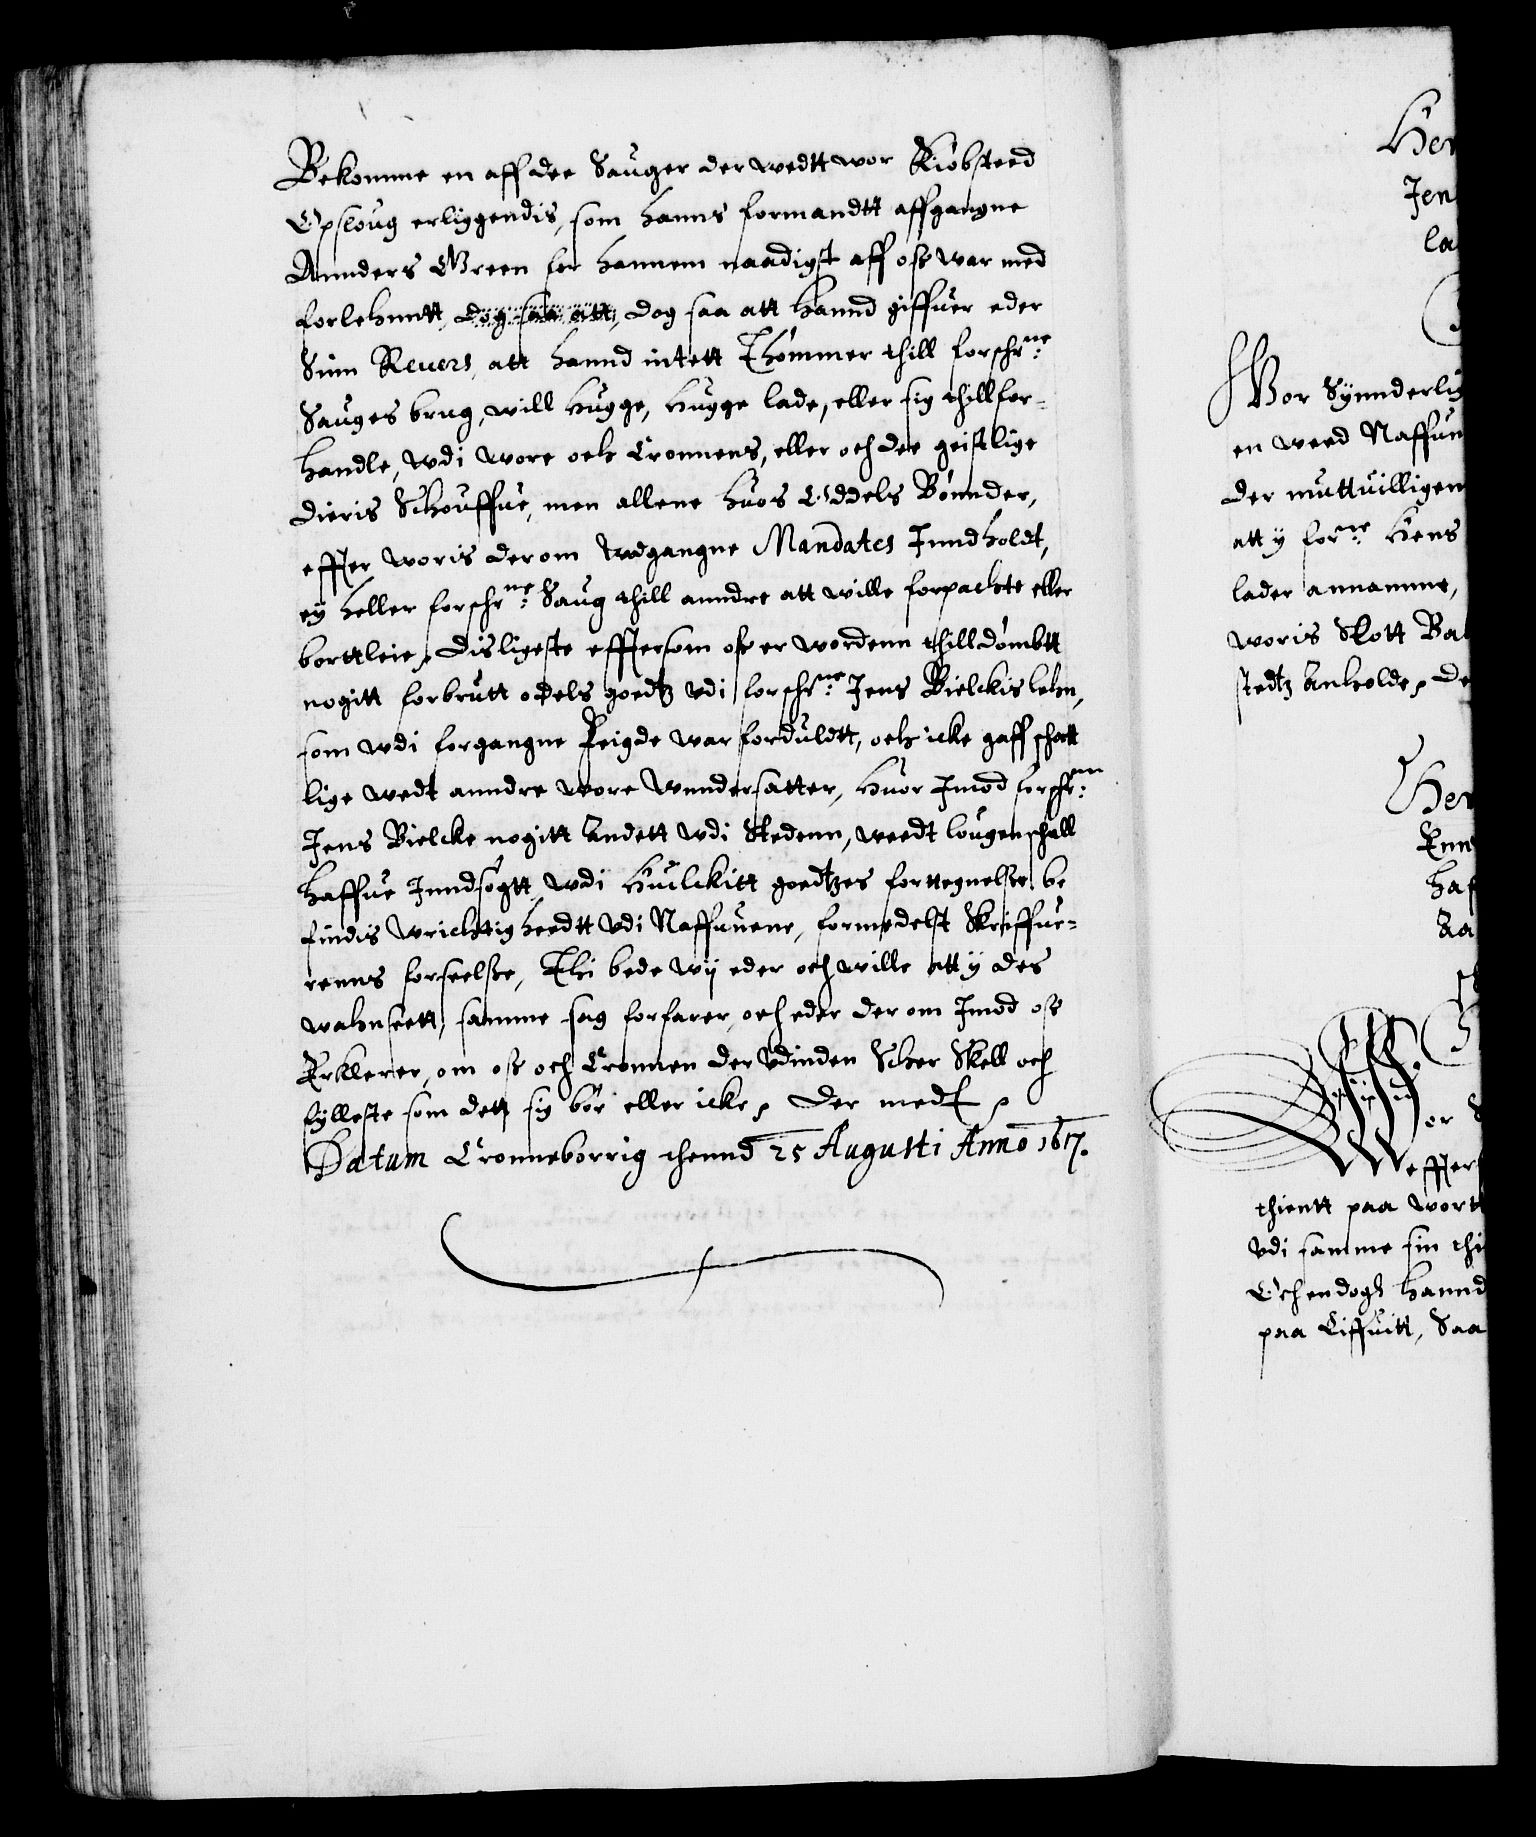 Bekomme en aff dee Sauger der wedtt wor Kiöbsteed
Opsloug erliggendis, som hanns formandtt affgangne
Annders Green for hannem naadigst aff oss war med
forlehnntt, dog saa att, dog saa att hannd giffuer eder
Sinn Reuers, att hannd intett Thömmer thill forschrne:
Sauges brug, will hugge, hugge lade, eller sig thillfor-
handle, wdi wore och Cronnens, eller och dee geistlige
dieris Schouffue, men allene huos Oddels Bönnder,
effter woris derom wdgangne Mandates Inndholdt,
ey heller forschrne: Saug thill anndre att wille forpachte eller
borttleie, Disligeste efftersom oss er wordenn thilldömbtt
nogitt forbrutt odels goedtz vdi forschrne: Jens Bielckis lehn,
som wdi forgangne Feigde war forduldtt, och icke gaff schatt
lige wedt anndre wore wnndersatter, huor Imod forschrnn:
Jens Bielcke nogitt Andett wdi Stedenn, weedt lougen schall
haffue Inndsögtt, wdi huilckitt goedtzes forttegnelsse be
findis wrichtigheedtt vdi Naffunene, formedelst Skriffue-
renns forseelsse, Thi bede wij eder och wille att y des
wahnseett, samme sag forfarer, och eder der om Imod oss
Erklerer, om oss och Cronnen der vdinden Scher Skell och
fylleste som dett sig bör eller icke, Der medt,
Datum Cronneborrig thennd 25 Augusti Anno 1617.
Her
Jen
la
Wor Synnderlig
en weed Naffun
der muttuilligen
att y forne: Hens
lader annamme,
woris Slott Ba
stedtz Anholde, De
Her
Enn
haf
Aa
or S
effter
thientt paa wort
vdi samme sin thi
Och endogh hannd
paa Liffuitt, Saa